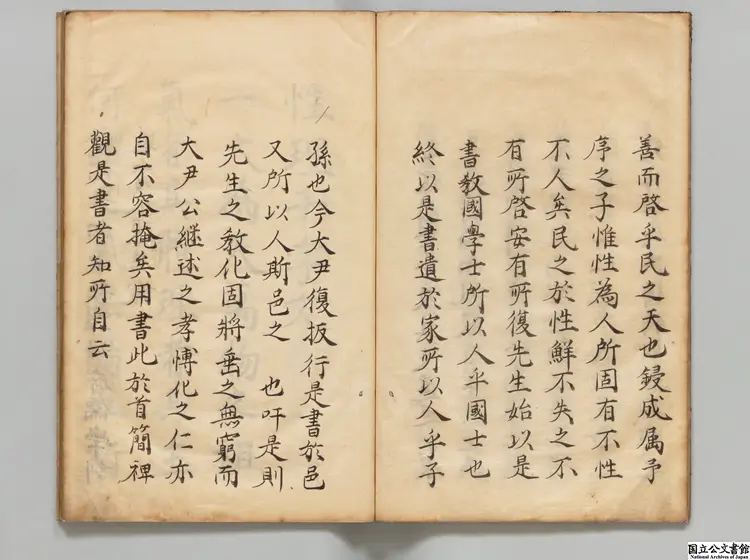 善而啓乎民之天也鋟成属予
序之子惟性為人所固有不性
不人矣民之於性鮮不失之不
有所啓安有所復先生始以是
書教國學士所以人乎國士也
終以是書遺於家所以人乎子
孫也今大尹復扳行是書於邑
又所以人斯邑之　也吁是則
先生之教化固將垂之無窮而
大尹公継述之孝愽化之仁亦
自不容掩矣用書此於首簡裨
觀是書者知所自云
国立公文書館
National Archives of Japan